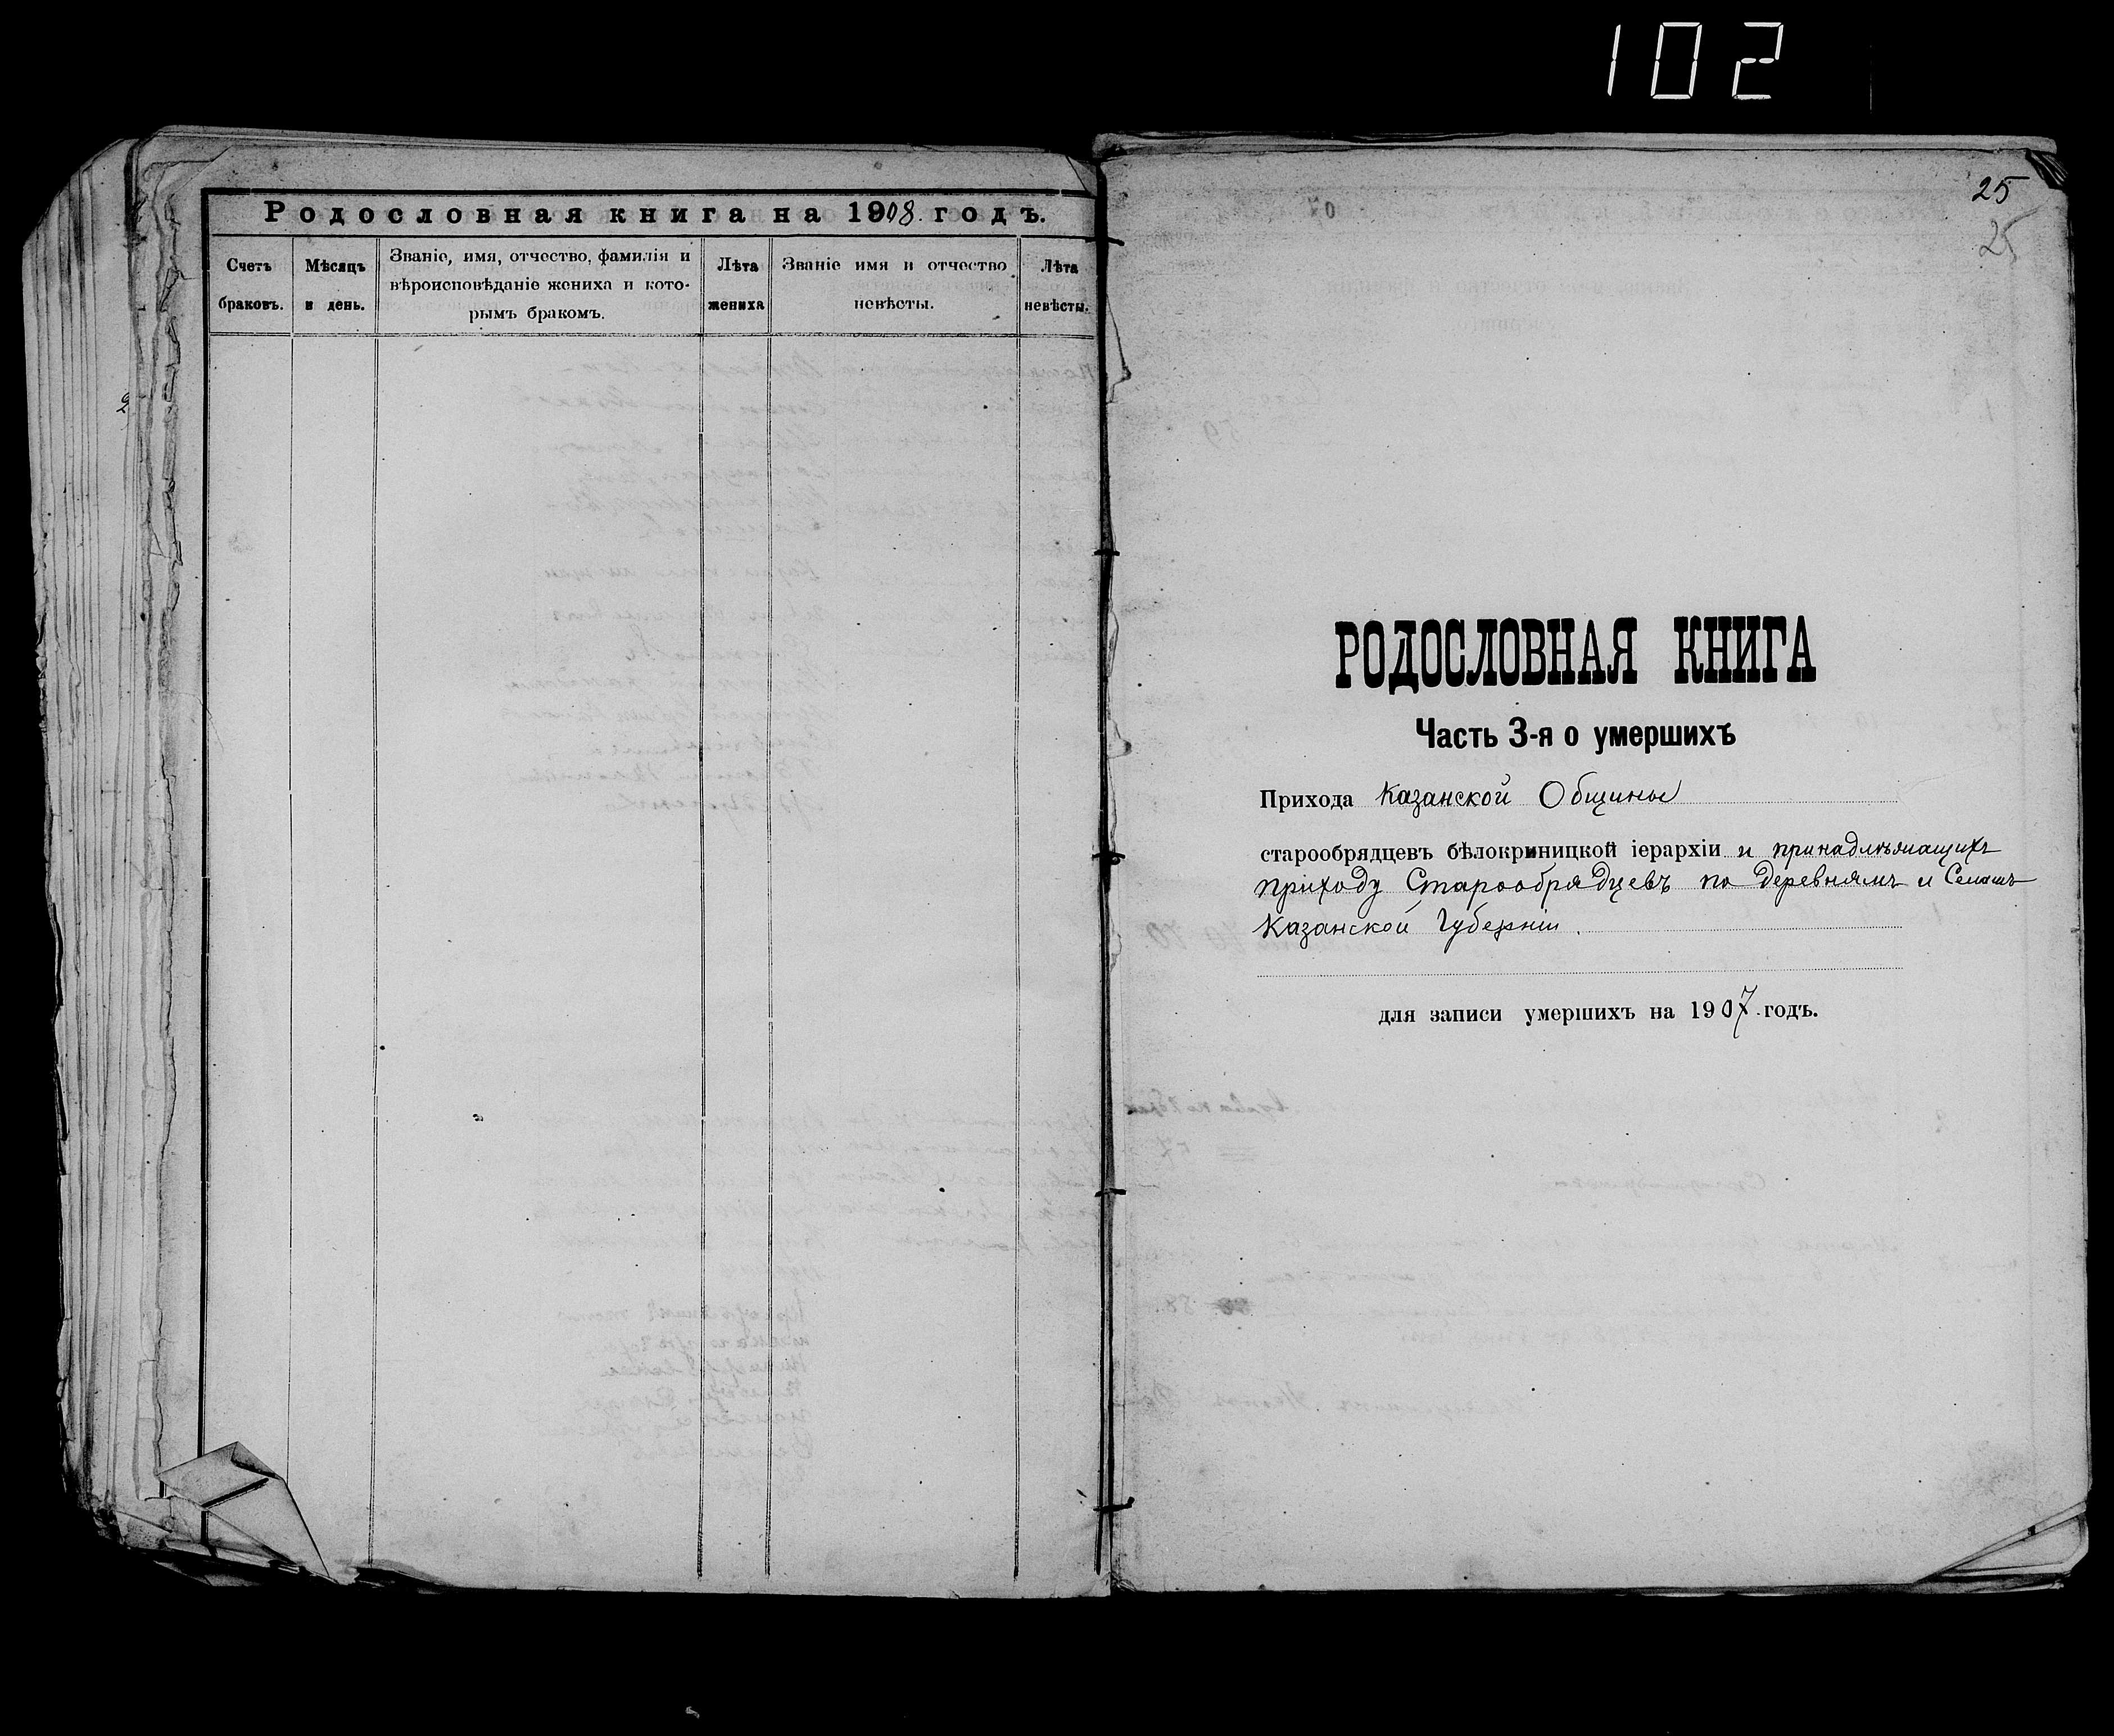 102
Родословная книга на 1908. годъ.
Счетъ браковъ.
Мѣсяцъ и день.
Званіе, имя, отчество, фамилія и
вѣроисповѣданіе жениха и кото-
рымъ бракомъ.
Лѣта жениха
Званіе имя и отчество
невѣсты.
Лѣта невѣсты.
25
25
РОДОСЛОВНАЯ КНИГА
Часть 3-я о умершихъ
Прихода Казанской Общины
старообрядцевъ бѣлокриницкой іерархіи и принадлѣжащихъ
приходу Старообрядцевъ по деревнямъ и Селамъ
Казанской Губерніи.
для записи умершихъ на 1907. годъ.